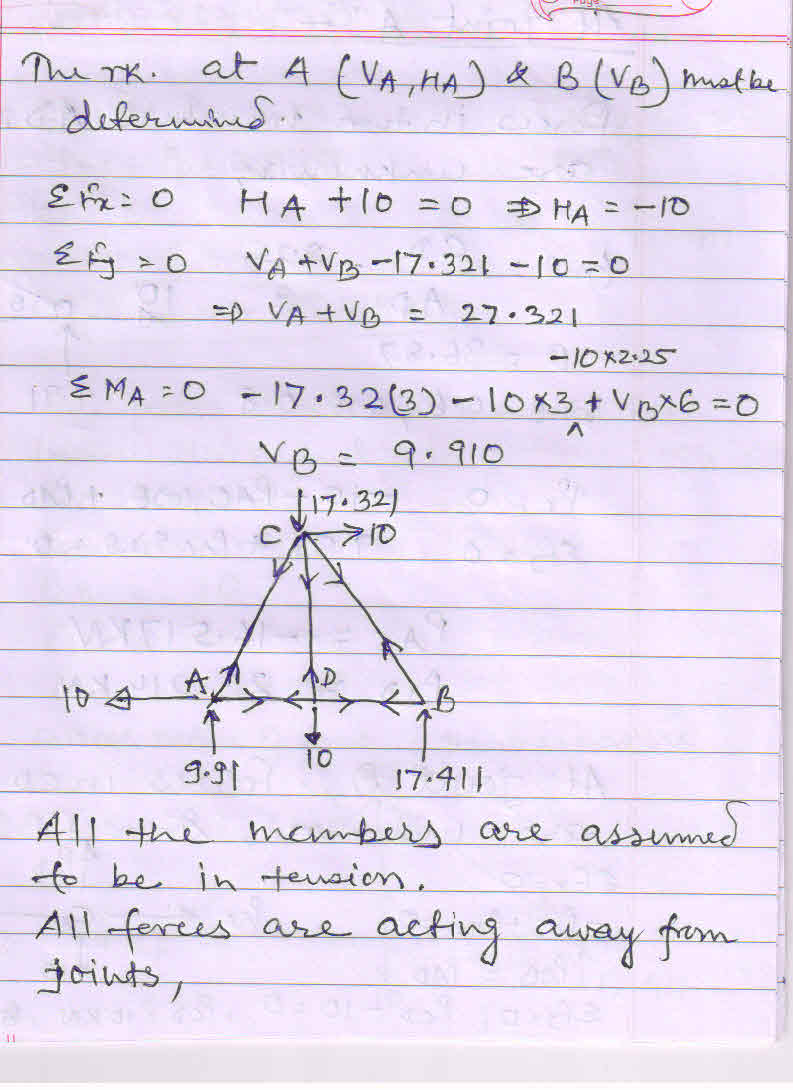 Page
The rx. at A (VA, HA) & B (VB) must be
determined.
ΣFx = 0 HA + 10 = 0 ⇒ HA = -10
ΣFy = 0 VA + VB - 17.321 - 10 = 0
⇒ VA + VB = 27.321
-10×2.25
ΣMA = 0 - 17.32(3) - 10×3 + VB×6 = 0
^
VB = 9.910
17.321
C 10
10 A D B
9.91 10 17.411
All the members are assumed
to be in tension.
All forces are acting away from
joints,